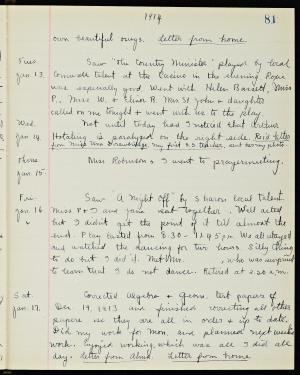 1914 81
own beautiful rugs. Letter from home
Tues. Saw "The Country Minister" played by local
Jan 13. Cornwall talent at the Casino in the evening. Roxie
was especially good. Went with Helen Bassett, Miss
P., Miss W. & Elinor B. Mrs St John & daughter
called on me tonight & went with us to the play.
Wed. Not until today had I noticed that Arthur
Jan 14. Hotaling is paralyzed on the right side. Rec'd letter
from Miss my first S.S. teacher, and her photo
Thurs. Miss Robinson & I went to prayermeeting.
Jan. 15.
Fri. Saw "A Night Off" by Sharon local talent.
Jan. 16. Miss P & I and Jane went together. Well acted
but I didn't get the point of it till almost the
end. Play lasted from 8.30 - 11.45 P.M. We all stayed
and watched the dancing for two hours. Silly thing
to do but I did it. Met Mr. , who was surprised
to learn that I do not dance. Retired at 2.20 A.M.
Sat. Corrected Algebra & Geom. test papers of
Jan. 17. Dec 19, 1913 and finished correcting all other
papers so they are all in order & up to date.
Did my work for Mon. and planned next week's
work. Enjoyed working, which was all I did all
day. Letter from Alma. Letter from home